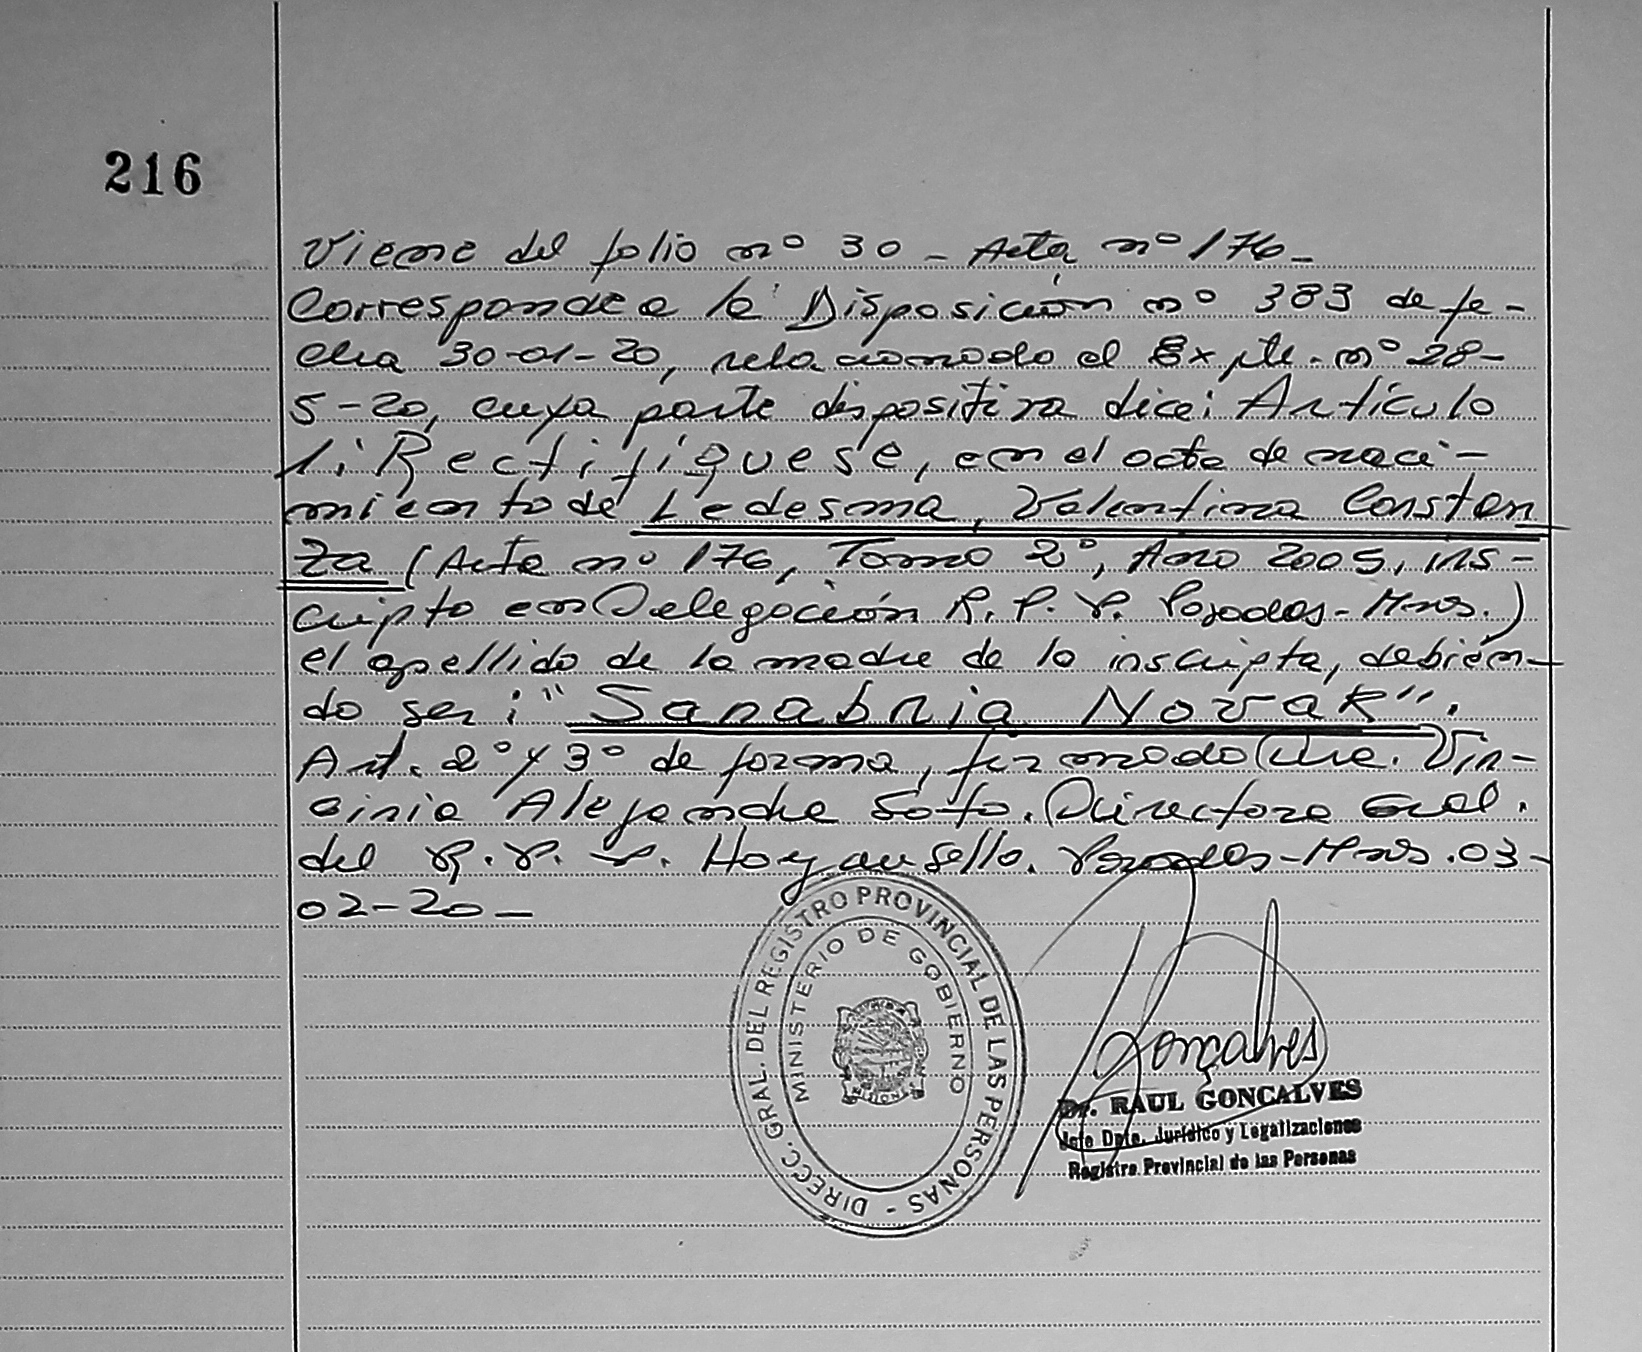 216
Viene del folio nº 30 - Acta nº 176 -
Corresponde a la Disposición nº 383 de fe-
cha 30-01-20, relacionado al Expte. nº 28-
5-20, cuya parte dispositiva dice: Artículo
1: Rectifíquese, en el acta de naci-
miento de Ledesma, Valentina Constan
za (Acta nº 176, Tomo 2º, Año 2005, ins-
cripto en Delegación R. P. P. Posadas - Mnes.)
el apellido de la madre de la inscripta, debién-
do ser: "Sanabria Novak".
Art. 2º y 3º de forma, firmado
Alejandra Soto. Directora Gral.
del R. P. P. Hay un sello. Posadas - Mnes. 03-
02-20 -
DIRECC. GRAL. DEL REGISTRO PROVINCIAL DE LAS PERSONAS -
MINISTERIO DE GOBIERNO
MISIONES
Gonçalves
Dr. RAUL GONCALVES
Jefe Dpto. Jurídico y Legalizaciones
Registro Provincial de las Personas